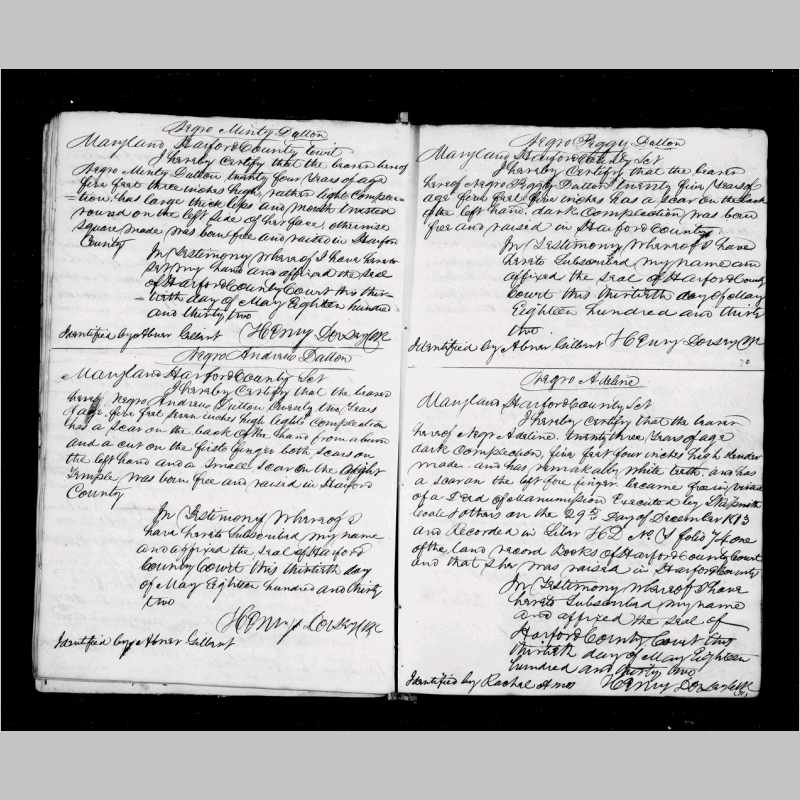 Negro Minty Dallon
Maryland Harford County towit
I hereby Certify that the bearer hereof
Negro Minty Dallon twenty four Years of age
five feet three inches high, rather light Complec=
=tion has large thick lips and mouth twisted
round on the left side of her face, otherwise
square made was born free and raised in Harford
County
In Testimony Whereof I have hereto
set my hand and affixed the Seal
of Harford County Court this thir=
=tieth day of May Eighteen hundred
and thirty two
Identified by Abner Gilbert Henry Dorsey Clk
Negro Andrew Dallon
Maryland Harford County Sct
I hereby Certify that the bearer
hereof Negro Andrew Dallon twenty two Years
of age five feet seven inches high light Complection
has a Scar on the back of the hand from a burn
and a cut on the finger both scars on
the left hand and a small Scar on the Right
Temple was born free and raised in Harford
County
In Testimony Whereof I
have hereto Subscribed my name
and affixed the Seal of Harford
County Court this thirtieth day
of May Eighteen hundred and thirty
two
Henry Dorsey Clk
Identified by Abner Gilbert
Negro Peggy Dallon
Maryland Harford County Sct
I hereby Certify that the bearer
hereof Negro Peggy Dallon twenty five Years of
age five feet five inches has a scar on the back
of the left hand. dark Complection was born
free and raised in Harford County
In Testimony Whereof I have
hereto Subscribed my name and
affixed the Seal of Harford County
Court this thirtieth day of May
Eighteen hundred and thirty
two
Identified by Abner Gilbert Henry Dorsey Clk
Negro Adeline
Maryland Harford County Sct
I hereby Certify that the bearer
hereof Negro Adeline. twenty three Years of age
dark Complection, five feet four inches high slender
made and has remarkably white teeth and has
a scar on the left fore finger became free in virtue
of a Deed of Manumission Executed by
& others on the 29th Day of December 1813
and Recorded in Liber HD No. Y folio 74 one
of the land record Books of Harford County Court
and that She was raised in Harford County
In Testimony Whereof I have
hereto Subscribed my name
and affixed the Seal of
Harford County Court this
thirtieth day of May Eighteen
hundred and thirty two
Identified by Rachel Amos Henry Dorsey Clk